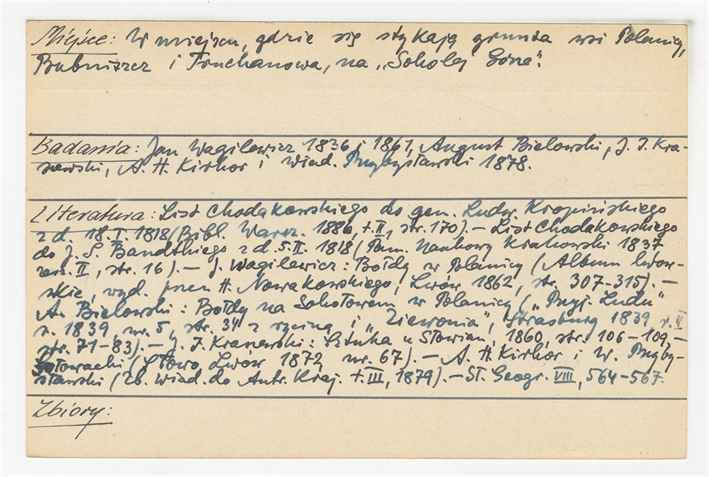 Miejsce: W miejscu, gdzie się stykają grunta wsi Polanicy,
Bubniszcz i Truchanowa, na „Sokolej Górze".
Badania: Jan Wagilewicz 1836 i 1861, August Bielowski, J. I. Kra-
szewski, A. H. Kirkor i Wład. Przybysławski 1878.
Literatura: List Chodakowskiego do gen. Ludw. Kropińskiego
z d. 18.I.1818 (Bibl. Warsz. 1886, t.II, str. 170). – List Chodakowskiego
do J. S. Bandtkiego z d. 5.II.1818 (Pam. Naukowy Krakowski 1837
II, str. 16). – J. Wagilewicz: Bołdy w Polanicy (Album lwow-
skie, wyd. przez H. Nowakowskiego, Lwów 1862, str. 307-315). –
A. Bielowski: Bołdy na Sokołowem w Polanicy („Przyj. Ludu"
r. 1839, nr. 5, str. 34 z ryciną i „Ziewonia", Strasburg 1839
str. 71-83). – J. I. Kraszewski: Sztuka u Słowian, 1860, str. 106-109, –
(Słowo, Lwów 1872 nr. 67). – A. H. Kirkor i W. Przyby-
sławski (Zb. wiad. do Antr. Kraj. t. III, 1879). – Sł. Geogr. VIII, 564-567.
Zbiory: